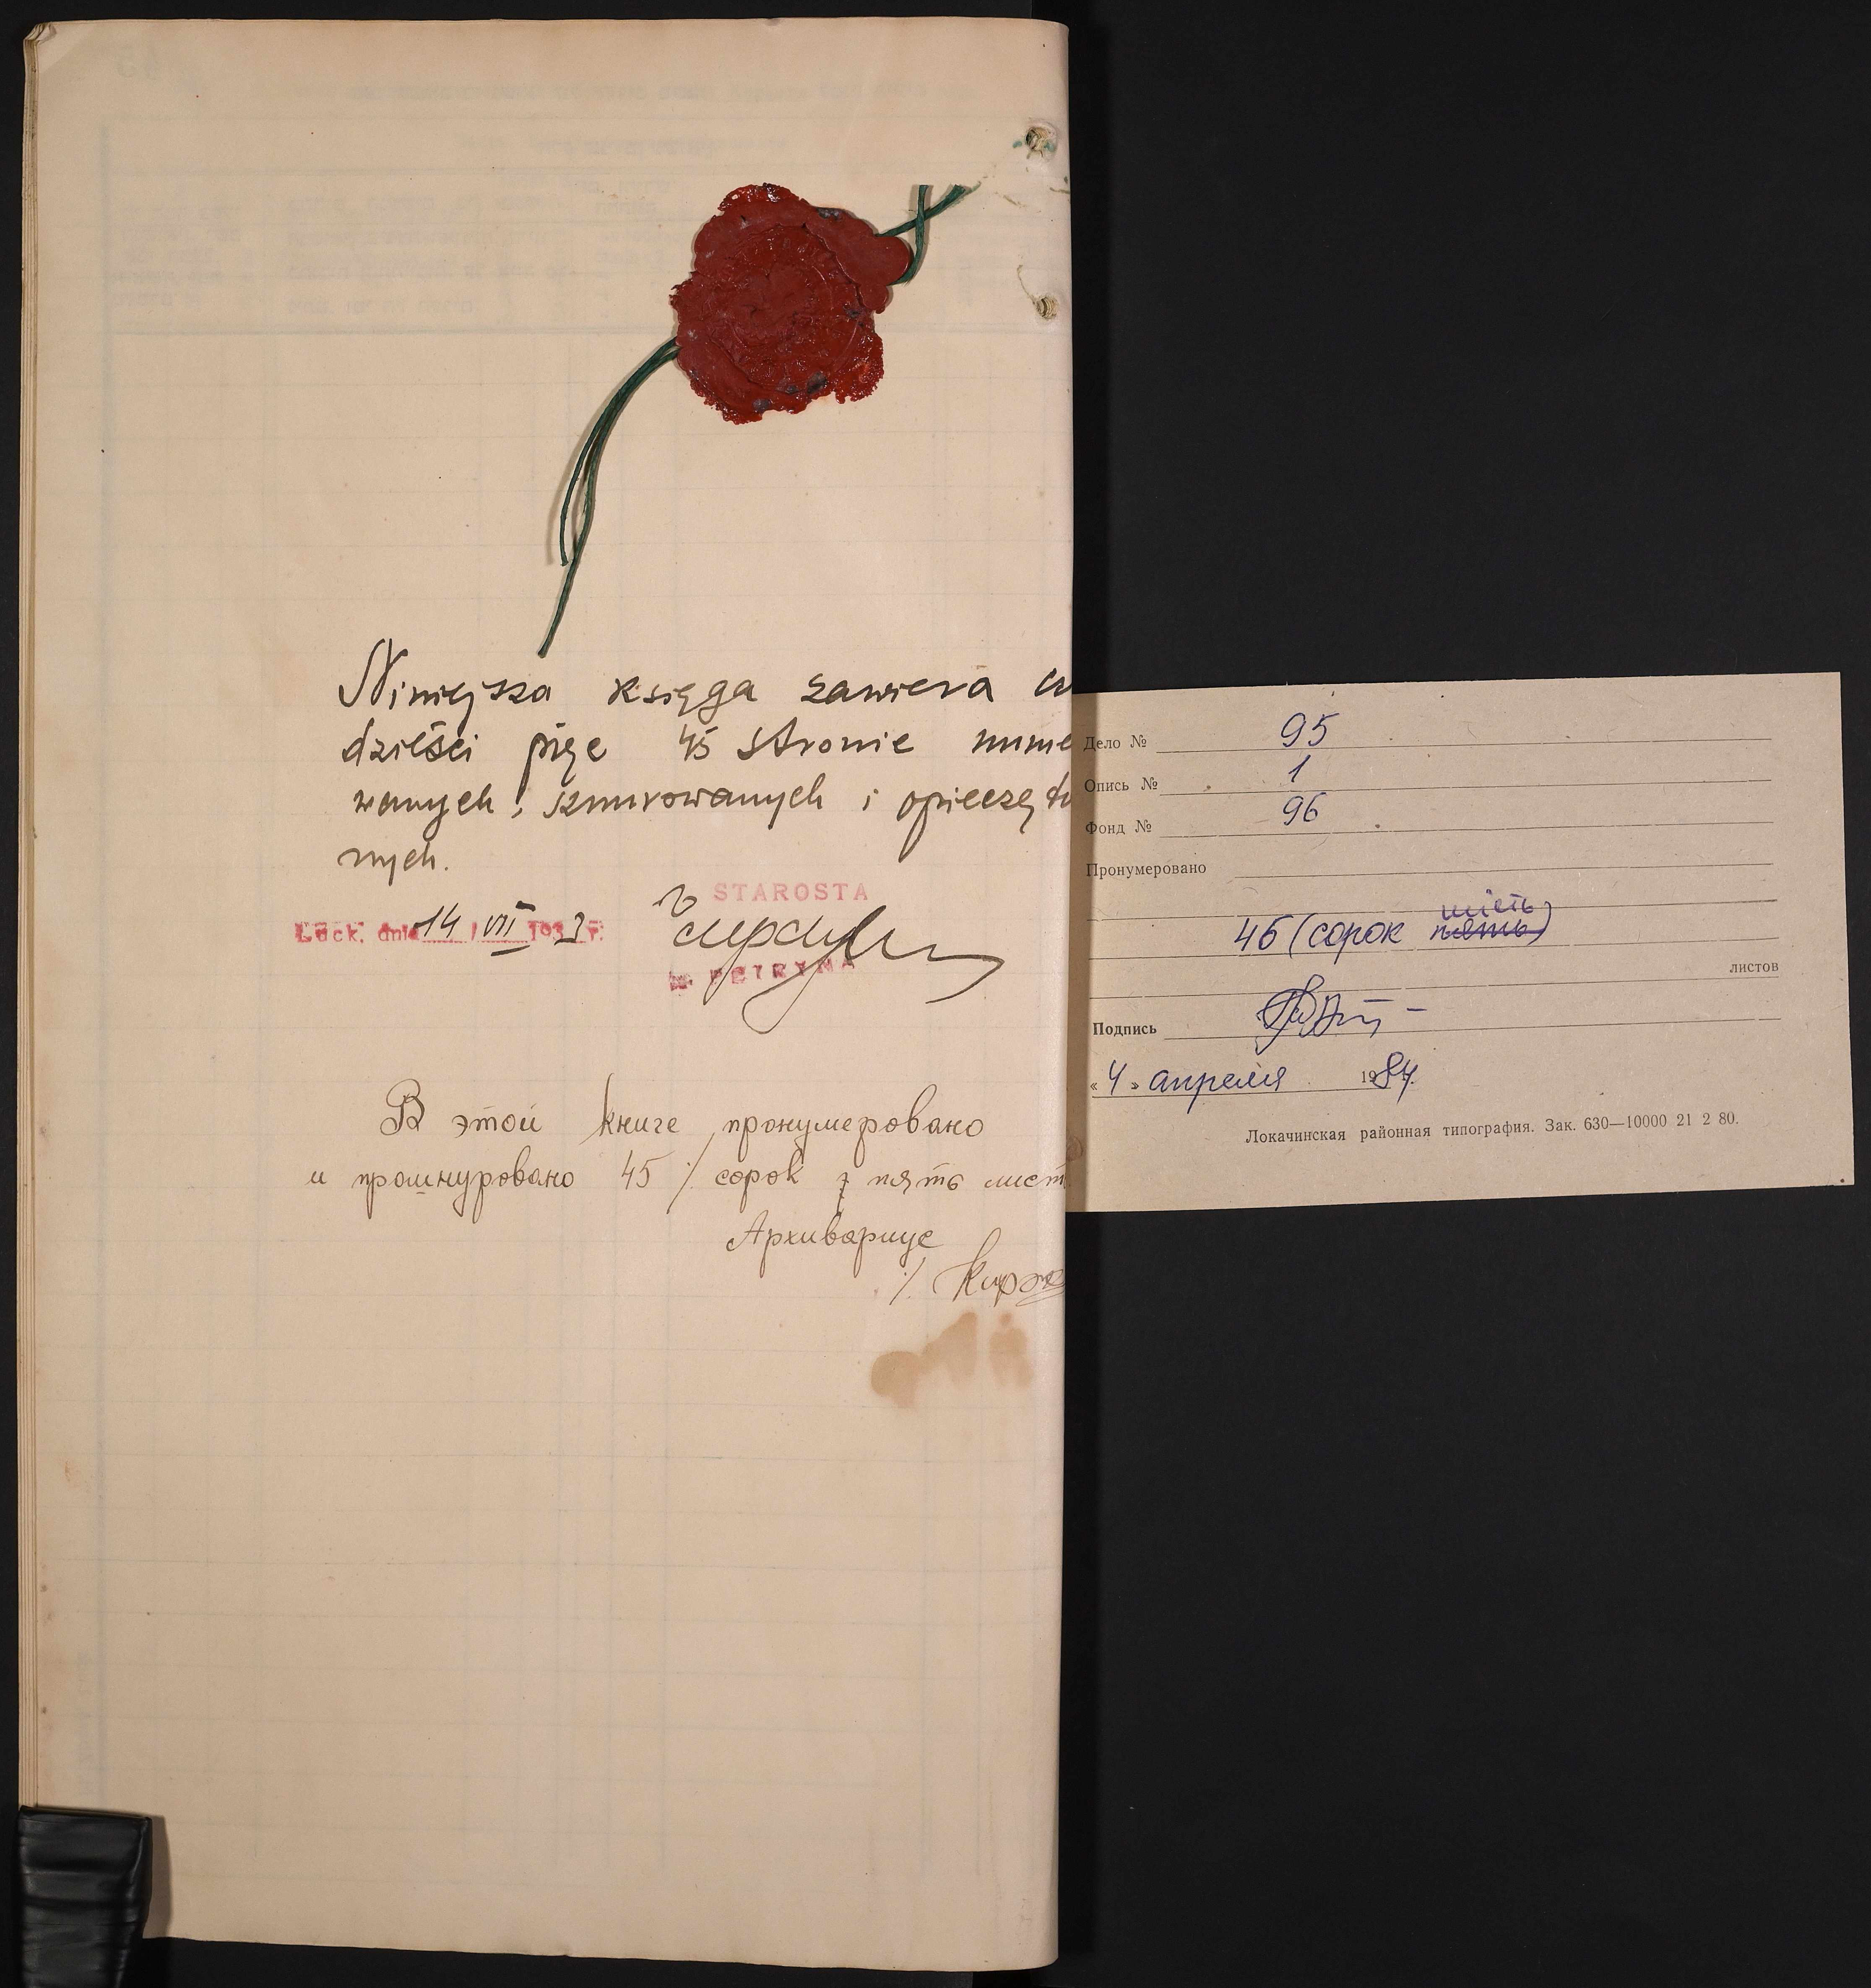 Niniejsza księga zawiera
dzieści pięć 45 stronic nume
wanych, sznurowanych i opieczęto
nych.
STAROSTA
Łuck, dnia 14 VII 193 3 r.
PETRYNA
В этой книге пронумеровано
и прошнуровано 45 / сорок пять лист
Архивариус
Дело № 95
Опись № 1
Фонд № 96
Пронумеровано
шесть
46 (сорок пять)
листов
Подпись
« 4 » апреля 1984.
Локачинская районная типография. Зак. 630—10000 21 2 80.